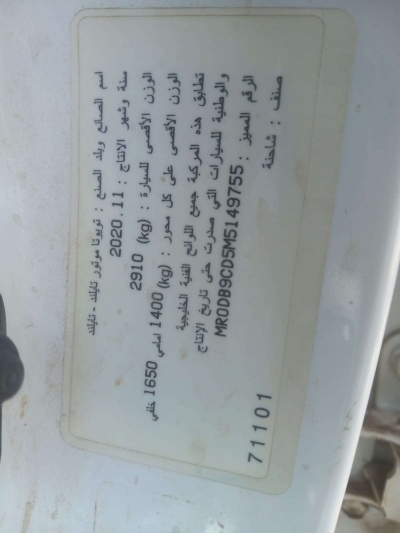 اسم الصانع وبلد الصنع : تويوتا موتور تايلند - تايلند
سنة وشهر الانتاج : 2020.11
الوزن الأقصى للسيارة : 2910 (kg)
الوزن الأقصى على كل محور : 1400 (kg) امامي 1650 خلفي
تطابق هذه المركبة جميع اللوائح الفنية الخليجية
والوطنية للسيارات التي صدرت حتى تاريخ الإنتاج
الرقم المميز : MR0DB9CD5M5149755
صنف : شاحنة
71101